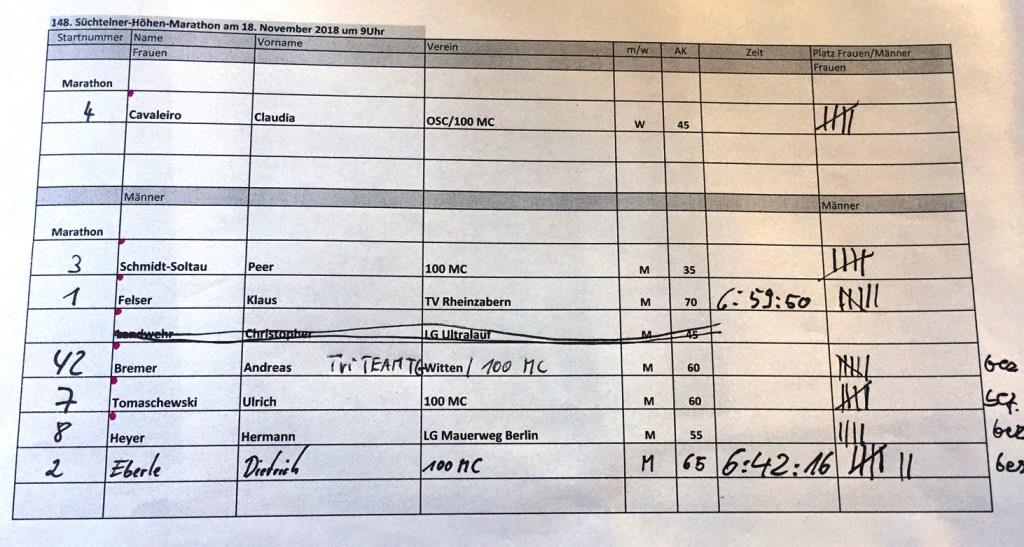 148. Süchtelner-Höhen-Marathon am 18. November 2018 um 9Uhr
Startnummer Name Vorname Verein m/w AK Zeit Platz Frauen/Männer
Frauen Frauen
Marathon
4 Cavaleiro Claudia OSC/100 MC W 45
Männer Männer
Marathon
3 Schmidt-Soltau Peer 100 MC M 35
1 Felser Klaus TV Rheinzabern M 70 6:59:50
Landwehr Christopher LG Ultralauf M 45
42 Bremer Andreas Tri TEAM TG Witten / 100 MC M 60 bez
7 Tomaschewski Ulrich 100 MC M 60
8 Heyer Hermann LG Mauerweg Berlin M 55 bez
2 Eberle Dietrich 100 MC M 65 6:42:16 bez